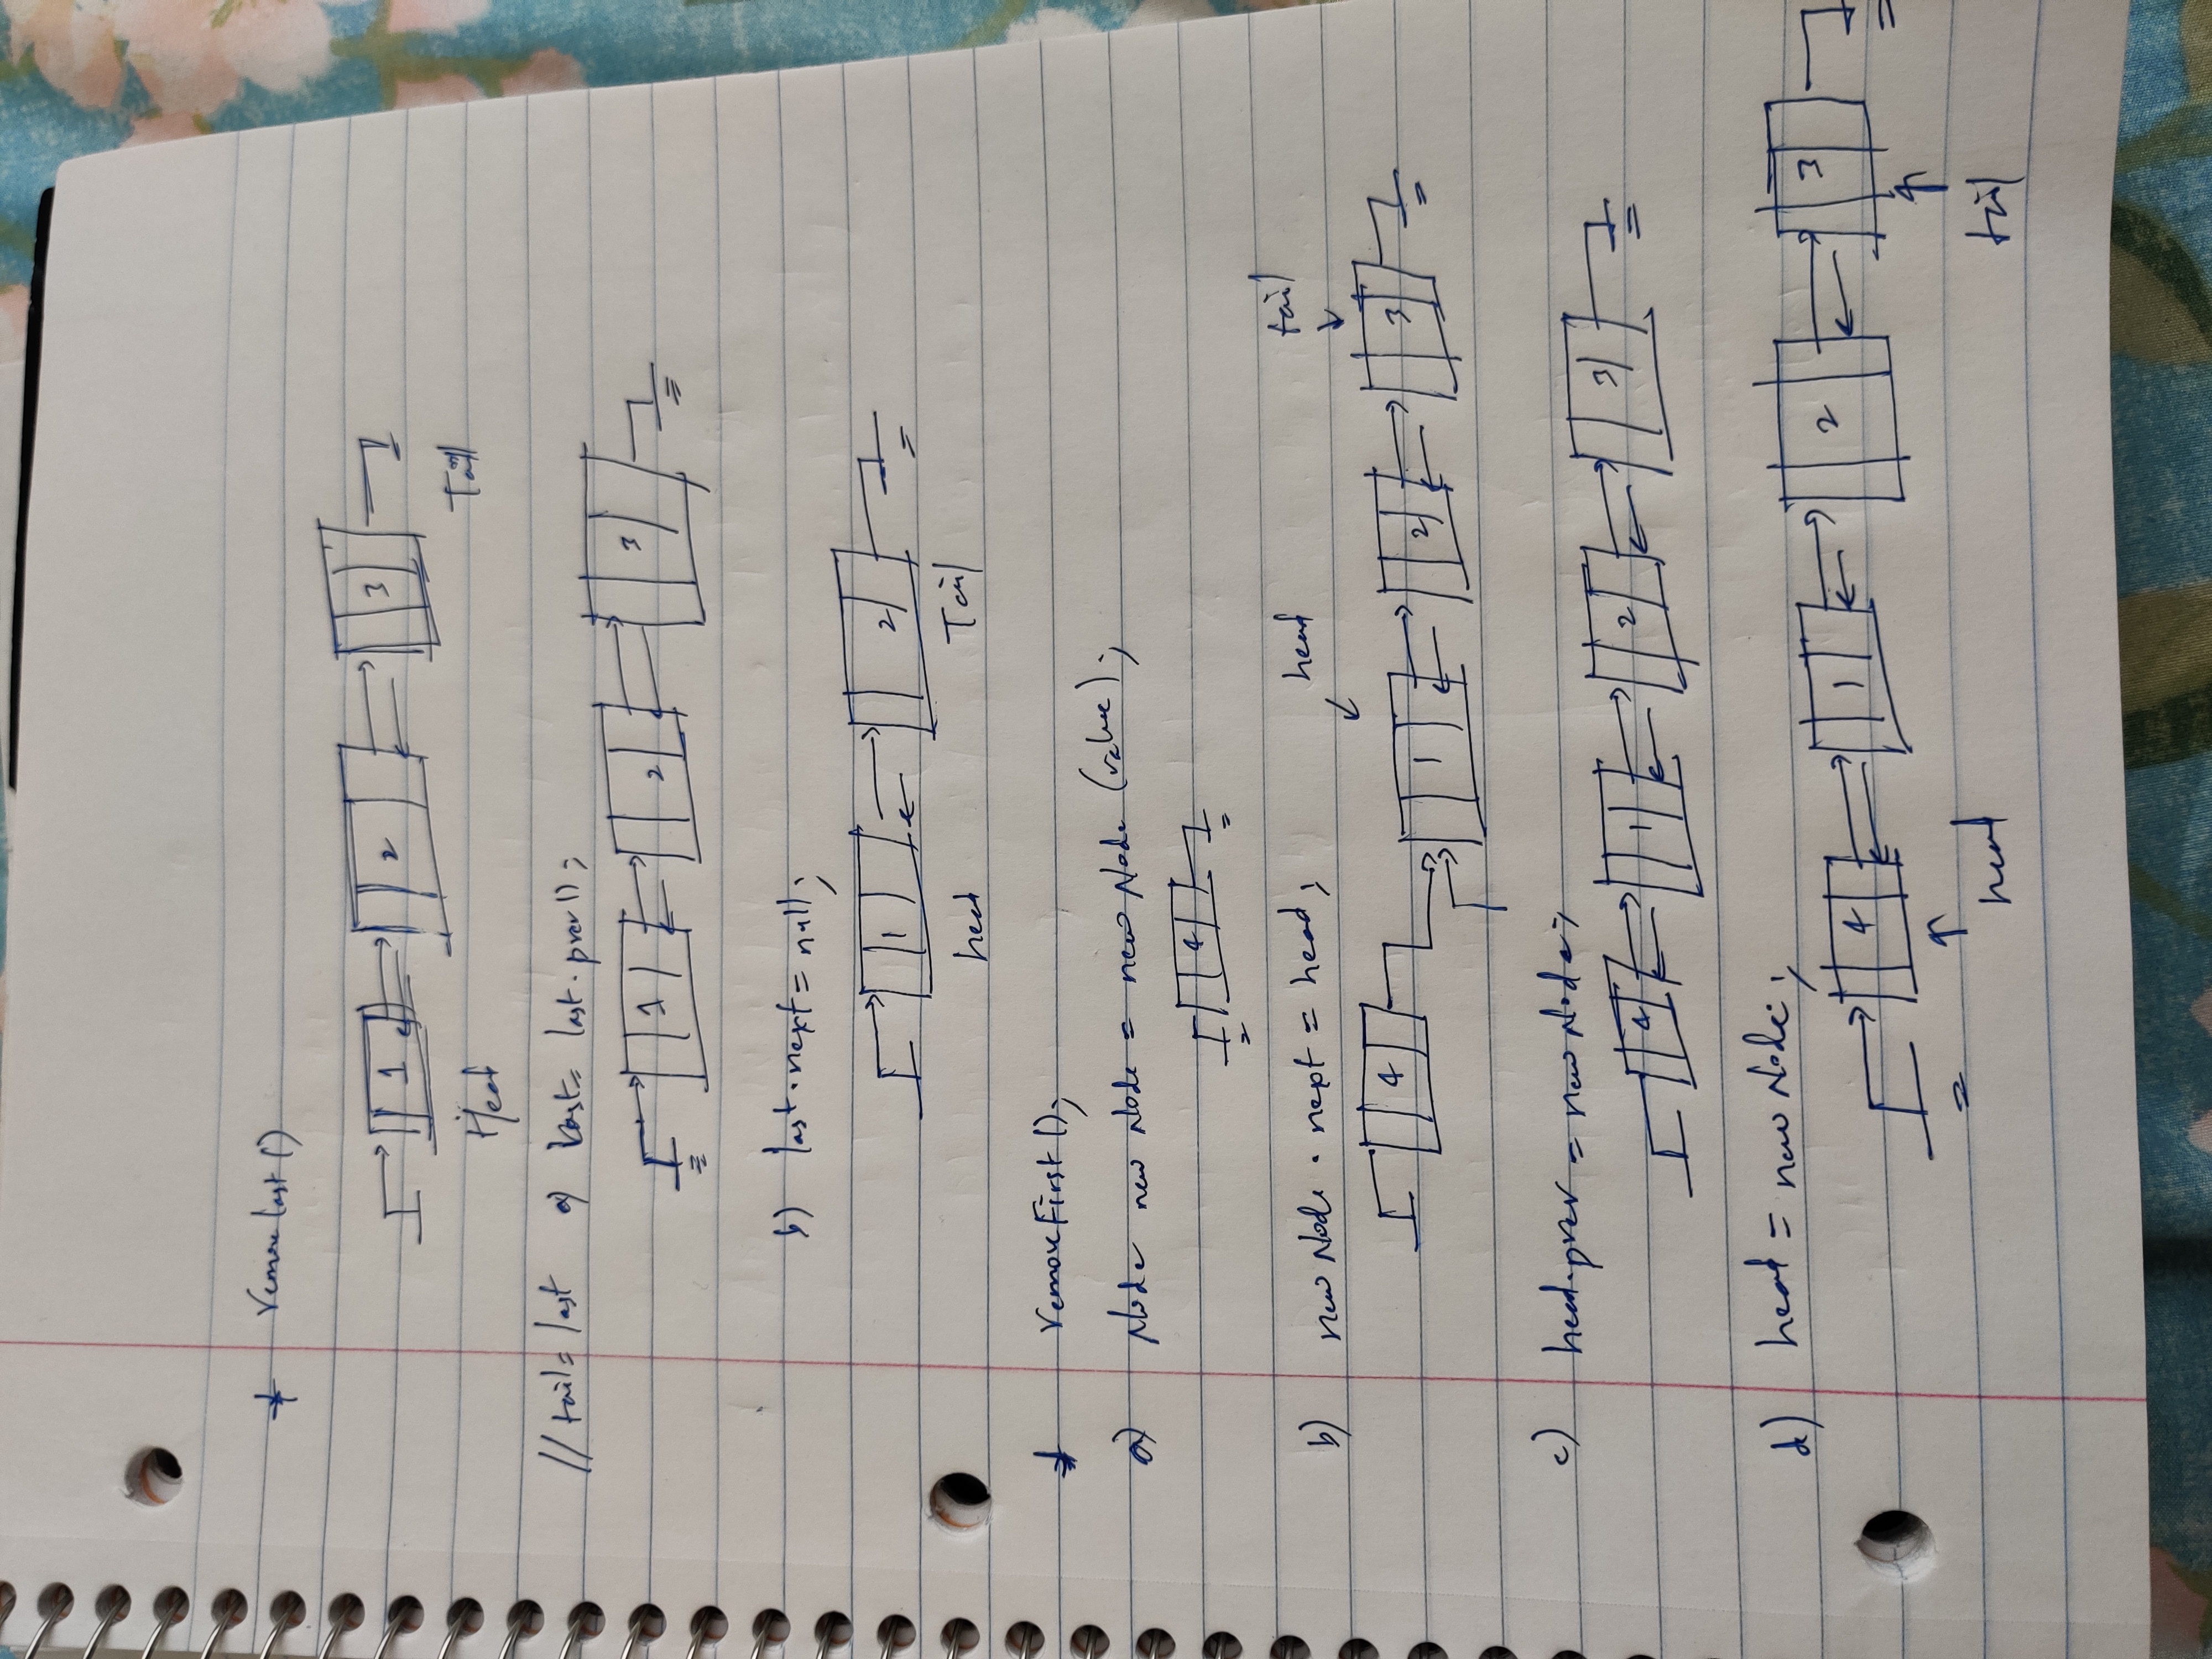 * removeLast()
1 2 3
Head Tail
// tail = last a) last = last.prev();
1 2 3
b) last.next = null;
1 2
head Tail
* removeFirst();
a) Node newNode = new Node (value);
4
b) newNode.next = head; head tail
4 1 2 3
c) head.prev = newNode;
4 1 2 3
d) head = newNode;
4 1 2 3
head tail